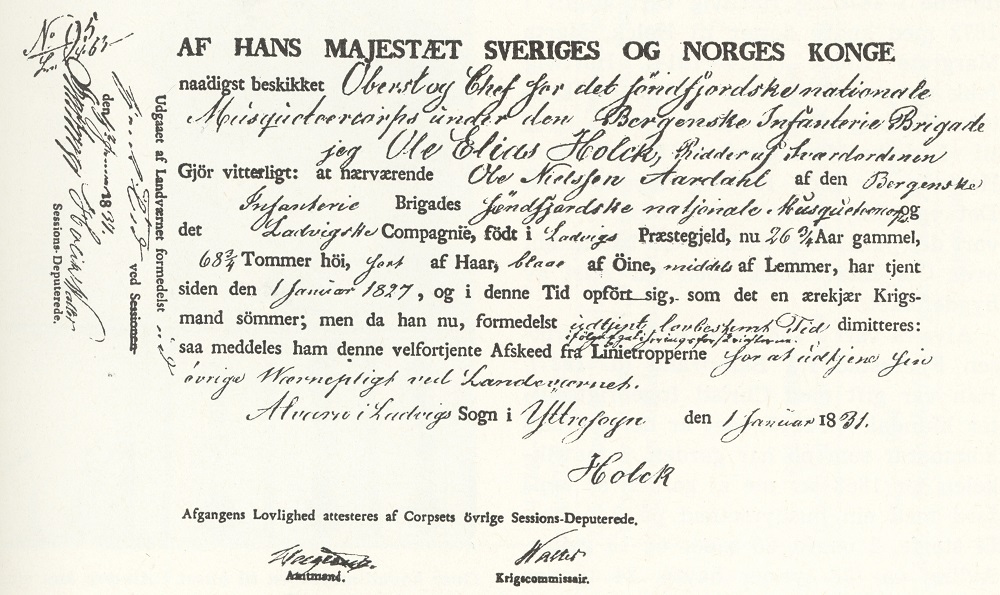 No 5
AF HANS MAJESTÆT SVERIGES OG NORGES KONGE
naadigst beskikket Oberst og Chef for det Söndfjordske nationale
Musqueteercorps under den Bergenske Infanterie Brigade
jeg Ole Elias Holck, Ridder af Sværdordenen
Gjör vitterligt: at nærværende Ole Nielssen Aardahl af den Bergenske
Infanterie Brigades Söndfjordske nationale Musqueteercorps og
det Ladvigske Compagnie, födt i Ladvigs Præstegjeld, nu 26 3/4 Aar gammel,
68 3/4 Tommer höi, sort af Haar, blaae af Öine, middels af Lemmer, har tjent
siden den 1 Januar 1827, og i denne Tid opfört sig, som det en ærekjær Krigs-
mand sömmer; men da han nu, formedelst udtjent lovbestemt Tid dimitteres:
saa meddeles ham denne velfortjente Afskeed fra Linietropperne for at udtjene sin
övrige Værnepligt ved Landeværnet.
i Ladvigs Sogn i Yttresogn den 1 Januar 1831.
Holck
Afgangens Lovlighed attesteres af Corpsets övrige Sessions-Deputerede.
Amtmand.
Krigscommissair.
Udgaaet af Landværnet formedelst
ved Sessionen
den 1834.
Holck
Sessions-Deputerede.